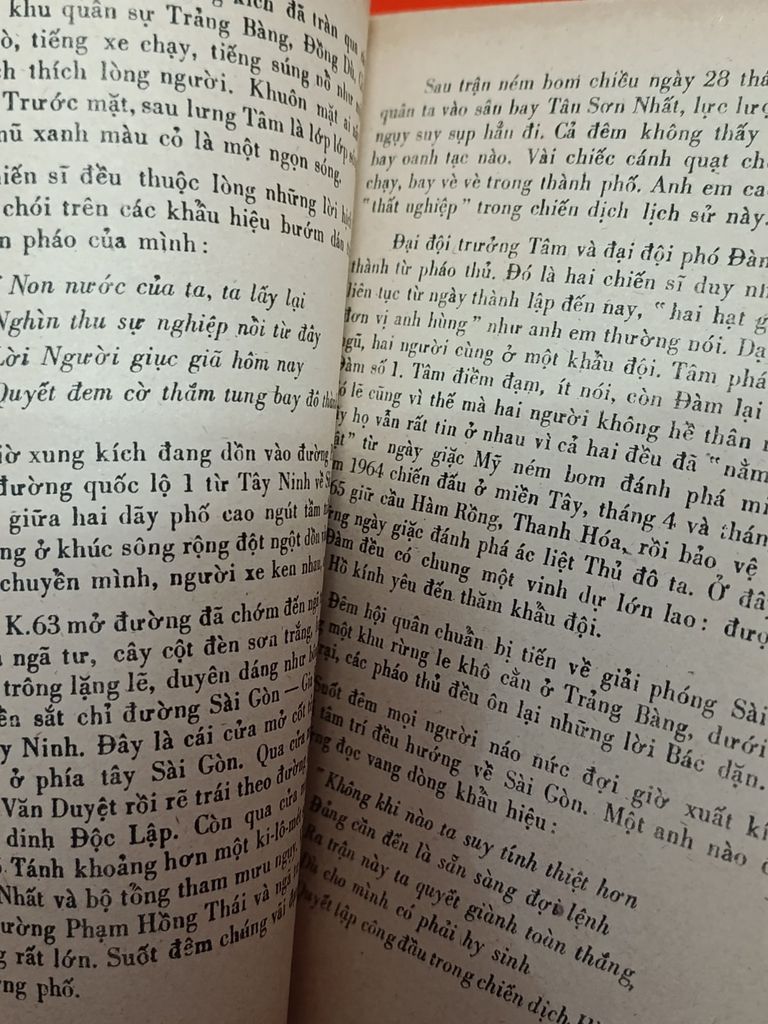 kích đã tràn qua
khu quân sự Trảng Bàng, Đồng Dù,
ò, tiếng xe chạy, tiếng súng nổ như
ch thích lòng người. Khuôn mặt ai
Trước mặt, sau lưng Tâm là lớp lớp
mũ xanh màu cỏ là một ngọn sóng.
hiến sĩ đều thuộc lòng những lời
chói trên các khẩu hiệu bướm dán
n pháo của mình :
Non nước của ta, ta lấy lại
Nghìn thu sự nghiệp nồi từ đây
Lời Người giục giã hôm nay
Quyết đem cờ thắm tung bay đô
iờ xung kích đang dồn vào đường
đường quốc lộ 1 từ Tây Ninh về
giữa hai dãy phố cao ngút tầm
ng ở khúc sông rộng đột ngột dồn
chuyền mình, người xe ken nhau,
K.63 mở đường đã chớm đến
ngã tư, cây cột đèn sơn trắng,
trông lặng lẽ, duyên dáng như
ền sắt chỉ đường Sài Gòn — Gò
y Ninh. Đây là cái cửa mở cốt
ở phía tây Sài Gòn. Qua cửa
Văn Duyệt rồi rẽ trái theo đường
dinh Độc Lập. Còn qua cửa
Tánh khoảng hơn một ki-lô-mét
Nhất và bộ tổng tham mưu ngụy.
ường Phạm Hồng Thái và ngã
g rất lớn. Suốt đêm chúng vải
ng phố.
Sau trận ném bom chiều ngày 28 thá
quân ta vào sân bay Tân Sơn Nhất, lực lượ
ngụy suy sụp hẳn đi. Cả đêm không thấy
bay oanh tạc nào. Vài chiếc cánh quạt ch
chạy, bay vè vè trong thành phố. Anh em ca
"thất nghiệp" trong chiến dịch lịch sử này.
Đại đội trưởng Tâm và đại đội phó Đàm
thành từ pháo thủ. Đó là hai chiến sĩ duy nh
liên tục từ ngày thành lập đến nay, "hai hạt g
đơn vị anh hùng" như anh em thường nói. Dạ
ngũ, hai người cùng ở một khẩu đội. Tâm phá
Đàm số 1. Tâm điềm đạm, ít nói, còn Đàm lại
ó lẽ cũng vì thế mà hai người không hề thân
y họ vẫn rất tin ở nhau vì cả hai đều đã "nằm
ật" từ ngày giặc Mỹ ném bom đánh phá mi
m 1964 chiến đấu ở miền Tây, tháng 4 và thán
65 giữ cầu Hàm Rồng, Thanh Hóa, rồi bảo vệ
ng ngày giặc đánh phá ác liệt Thủ đô ta. Ở đâ
Đàm đều có chung một vinh dự lớn lao : đượ
Hồ kính yêu đến thăm khẩu đội.
Đêm hội quân chuẩn bị tiến về giải phóng Sài
g một khu rừng le khô cằn ở Trảng Bàng, dưới
rại, các pháo thủ đều ôn lại những lời Bác dặn.
Suốt đêm mọi người náo nức đợi giờ xuất kí
tâm trí đều hướng về Sài Gòn. Một anh nào
ng đọc vang dòng khẩu hiệu :
"Không khi nào ta suy tính thiệt hơn
Đảng cần đến là sẵn sàng đợi lệnh
Ra trận này ta quyết giành toàn thắng,
Dù cho mình có phải hy sinh
Quyết lập công đầu trong chiến dịch